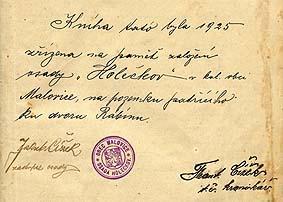 Kniha tato byla 1925
zřízena na pamět založení
osady "Holečkov" v kat. obci
Malovice, na pozemku patřícího
ku dvoru Rábínu.
Jakub Číšek
OBEC MALOVICE
OSADA HOLEČKOV
Frant.
t.č. kronikář